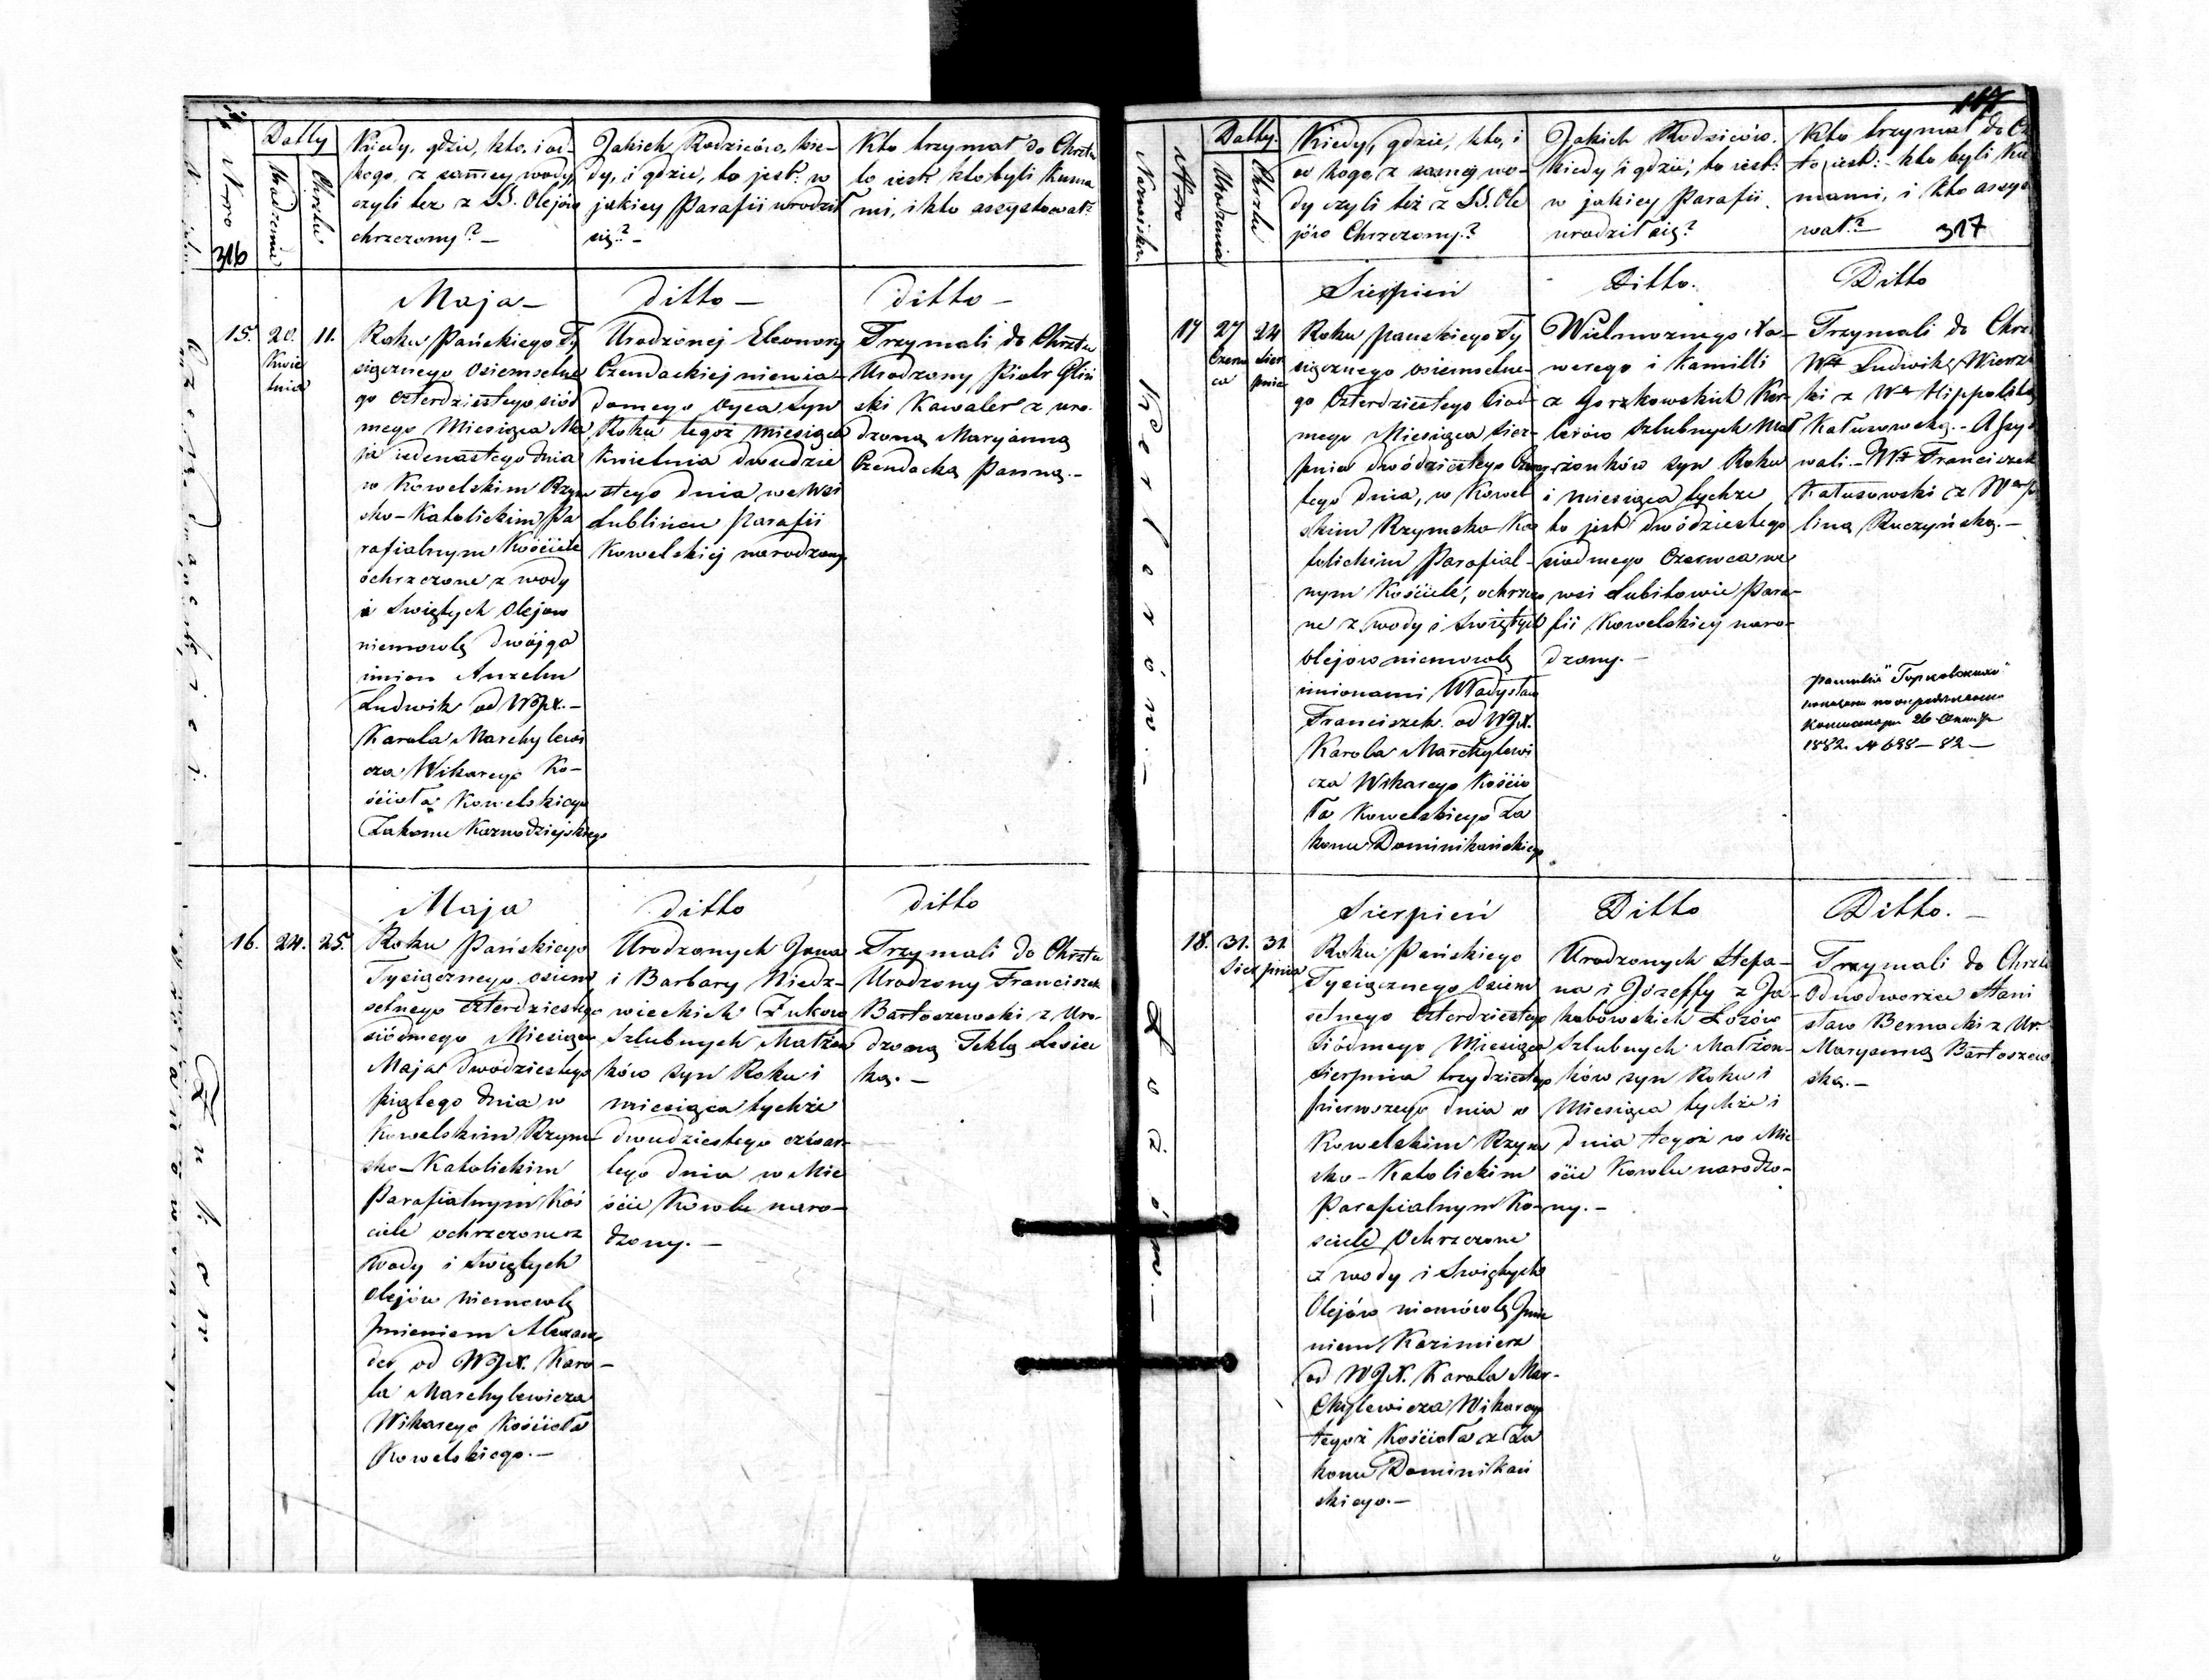 316
Nro
Datty
Urodzenia
Chrztu
Kiedy, gdzie, kto, i od
kogo, z samey wody,
czyli tez z SS. Olejów
chrzczony? —
Jakich Rodziców, kie-
dy, i gdzie, to jest: w
jakiey Parafii urodził
się? —
Kto trzymał do Chrztu
to iest kto byli Kuma
mi, i kto assystował?
Maja —
ditto —
ditto —
15.
20.
Kwie
tnia
11.
Roku Pańskiego Ty
siącznego Osiemsetne
go czterdziestego siód
mego Miesiąca Ma
ja iedenastego dnia
w Kowelskim Rzym
sko-Katolickim Pa
rafialnym Kościele
ochrzczone z wody
i Swiętych Olejow
niemowlę dwójga
imion Anzelm
Ludwik od WJX. —
Karola Marchylewi
cza Wikarego Ko-
ścioła Kowelskiego
Zakonu Kaznodziejskiego
Urodzonej Eleonory
Czendackiej niewia-
domego oyca syn
Roku tegoż miesiąca
Kwietnia dwudzie
stego dnia we Wsi
Lublińcu Parafii
Kowelskiej narodzony
Trzymali do Chrztu
Urodzony Piotr Gliń
ski Kawaler z uro-
dzoną Maryanną
Czendacką Panną. —
Maja
ditto
ditto
16.
24.
25.
Roku Pańskiego
Tysiącznego osiem
setnego czterdziestego
siódmego Miesiąca
Maja dwódziestego
piątego dnia w
Kowelskim Rzym-
sko-Katolickim
Parafialnym Koś
ciele ochrzczone z
wody i Swiętych
Olejów niemowlę
Jmieniem Alexan
der od WJX. Karo-
la Marchylewicza
Wikarego Kościoła
Kowelskiego. —
Urodzonych Jana
i Barbary Niedz-
wieckich Żuków
Szlubnych Małżon
ków syn Roku i
miesiąca tychże
dwudziestego czwar-
tego dnia w Mie
ście Kowlu naro-
dzony. —
Trzymali do Chrztu
Urodzony Franciszek
Bartoszewski z Uro-
dzoną Teklą Lesiec
ką. —
Żuków
117
Nazwiska
Nro
Datty.
Urodzenia
Chrztu
Kiedy, gdzie, kto, i
od kogo z samej wo-
dy czyli też z SS. Ole
jów Chrzczony?
Jakich Rodziców.
kiedy i gdzie, to iest:
w jakiey Parafii
urodził się?
Kto trzymał do
to iest: kto byli Ku
mami, i kto assys
wał? —
317
Sierpień
Ditto.
Ditto
Kerlerów. —
17
27
Czerw
ca
24
Sier
pnia
Roku pańskiego Ty
siącznego osiemsetne-
go Czterdziestego Siód-
mego Miesiąca Sier-
pnia dwódziestego Czwar
tego dnia, w Kowel
skim Rzymsko Ka
tolickim Parafial-
nym Kościele, ochrzczo
ne z wody i Swiętych
Olejow niemowlę
imionami Władysław
Franciszek od WJX.
Karola Marchylewi
cza Wikarego Kościo
ła Kowelskiego Za
konu Dominikańskiego
Wielmożnego Xa-
werego i Kamilli
z Gorzkowskich Ker-
lerów Szlubnych Mał
żonków syn Roku
i miesiąca tychże
to jest dwódziestego
siódmego Czerwca we
wsi Lubitowie Para-
fii Kowelskiey naro-
dzony. —
Trzymali do
Ludwik Wierz
ki z Hippolitą
Katusowską. —
wali. — Franciszek
Katusowski z
liną Ruczyńską. —
1882. № 698 — 82 —
Sierpień
Ditto
Ditto. —
Łozów. —
18.
31.
31
Sierpnia
Roku Pańskiego
Tysiącznego Osiem
setnego Czterdziestego
Siódmego Miesiąca
Sierpnia trzydziestego
pierwszego dnia w
Kowelskim Rzym
sko-Katolickim
Parafialnym Ko-
sciele Ochrzczone
z wody i Swiętych
Olejów niemówlę Jmie
niem Kazimierz
od WJX. Karola Mar-
chylewicza Wikarego
tegoż Kościoła z Za
konu Dominikań
skiego. —
Urodzonych Stefa-
na i Jozeffy z Ja-
kubowskich Łozów
Szlubnych Małżon-
ków syn Roku i
Miesiąca tychże i
dnia tegoż w Mie
ście Kowlu narodzo-
ny. —
Trzymali do Chrztu
Odnodworzec Stani
sław Bernacki z Ur.
Maryanną Bartoszew
ską. —